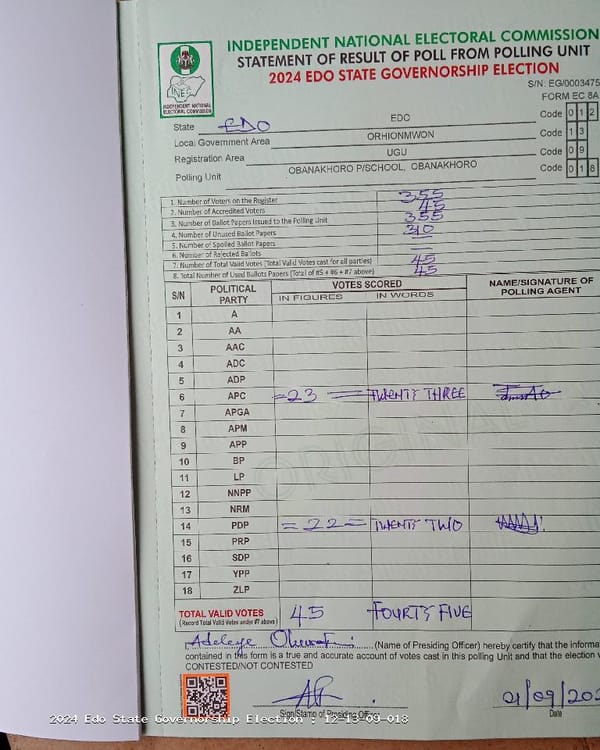 INDEPENDENT NATIONAL ELECTORAL COMMISSION
STATEMENT OF RESULT OF POLL FROM POLLING UNIT
2024 EDO STATE GOVERNORSHIP ELECTION
INEC
INDEPENDENT NATIONAL
ELECTORAL COMMISSION
S/N: EG/0003475
FORM EC 8A
State EDO EDO Code 0 1 2
Local Government Area ORHIONMWON Code 1 3
Registration Area UGU Code 0 9
Polling Unit OBANAKHORO P/SCHOOL, OBANAKHORO Code 0 1 8
1. Number of Voters on the Register 355
2. Number of Accredited Voters 45
3. Number of Ballot Papers Issued to the Polling Unit 355
4. Number of Unused Ballot Papers 310
5. Number of Spoiled Ballot Papers —
6. Number of Rejected Ballots —
7. Number of Total Valid Votes (Total Valid Votes cast for all parties) 45
8. Total Number of Used Ballots Papers (Total of #5 + #6 + #7 above) 45
S/N POLITICAL PARTY VOTES SCORED NAME/SIGNATURE OF POLLING AGENT
IN FIGURES IN WORDS
1 A
2 AA
3 AAC
4 ADC
5 ADP
6 APC =23= TWENTY THREE
7 APGA
8 APM
9 APP
10 BP
11 LP
12 NNPP
13 NRM
14 PDP =22= TWENTY TWO
15 PRP
16 SDP
17 YPP
18 ZLP
ORIGINAL
TOTAL VALID VOTES 45 FOURTY FIVE
(Record Total Valid Votes under #7 above)
I, Adeleye (Name of Presiding Officer) hereby certify that the informa
contained in this form is a true and accurate account of votes cast in this polling Unit and that the election
CONTESTED/NOT CONTESTED
Sign/Stamp of Presiding Officer
21/09/202
Date
2024 Edo State Governorship Election : 12-13-09-018